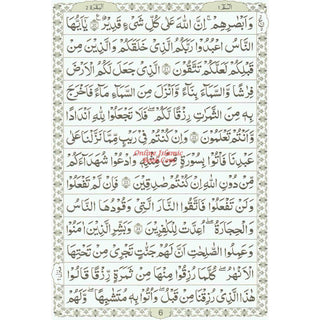 البقرة ٢
الٓمّٓ ١
وَاَبْصَارِهِمْ ؕ اِنَّ اللّٰهَ عَلٰى كُلِّ شَىْءٍ قَدِيْرٌ ۟ يٰۤاَيُّهَا
النَّاسُ اعْبُدُوْا رَبَّكُمُ الَّذِىْ خَلَقَكُمْ وَالَّذِيْنَ مِنْ
قَبْلِكُمْ لَعَلَّكُمْ تَتَّقُوْنَ ۟ الَّذِىْ جَعَلَ لَكُمُ الْاَرْضَ
فِرَاشًا وَّالسَّمَآءَ بِنَآءً ۪ وَّاَنْزَلَ مِنَ السَّمَآءِ مَآءً فَاَخْرَجَ
بِهٖ مِنَ الثَّمَرٰتِ رِزْقًا لَّكُمْ ۚ فَلَا تَجْعَلُوْا لِلّٰهِ اَنْدَادًا
وَّاَنْتُمْ تَعْلَمُوْنَ ۟ وَاِنْ كُنْتُمْ فِىْ رَيْبٍ مِّمَّا نَزَّلْنَا عَلٰى
عَبْدِنَا فَاْتُوْا بِسُوْرَةٍ مِّنْ مِّثْلِهٖ ۪ وَادْعُوْا شُهَدَآءَكُمْ
Online Islamic
مِّنْ دُوْنِ اللّٰهِ اِنْ كُنْتُمْ صٰدِقِيْنَ ۟ فَاِنْ لَّمْ تَفْعَلُوْا
وَلَنْ تَفْعَلُوْا فَاتَّقُوا النَّارَ الَّتِىْ وَقُوْدُهَا النَّاسُ
وَالْحِجَارَةُ ۖۚ اُعِدَّتْ لِلْكٰفِرِيْنَ ۟ وَبَشِّرِ الَّذِيْنَ اٰمَنُوْا
وَعَمِلُوا الصّٰلِحٰتِ اَنَّ لَهُمْ جَنّٰتٍ تَجْرِىْ مِنْ تَحْتِهَا
الْاَنْهٰرُ ؕ كُلَّمَا رُزِقُوْا مِنْهَا مِنْ ثَمَرَةٍ رِّزْقًا ۙ قَالُوْا
هٰذَا الَّذِىْ رُزِقْنَا مِنْ قَبْلُ ۙ وَاُتُوْا بِهٖ مُتَشَابِهًا ؕ وَلَهُمْ
6